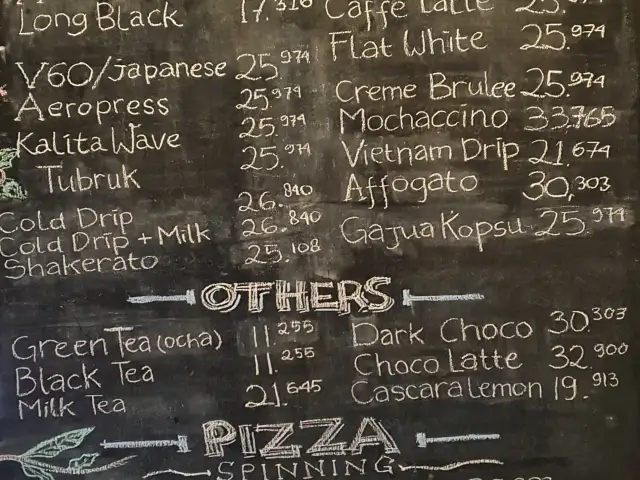 Long Black 17.316
V60/japanese 25.974
Aeropress 25.974
Kalita Wave 25.974
Tubruk 25.974
Cold Drip 26.840
Cold Drip + Milk 26.840
Shakerato 25.108
Caffe Latte 25.974
Flat White 25.974
Creme Brulee 25.974
Mochaccino 33.765
Vietnam Drip 21.674
Affogato 30,303
Gajua Kopsu 25.974
OTHERS
Green Tea (ocha) 11.255
Black Tea 11.255
Milk Tea 21.645
Dark Choco 30.303
Choco Latte 32.900
Cascara Lemon 19.913
PIZZA
SPINNING